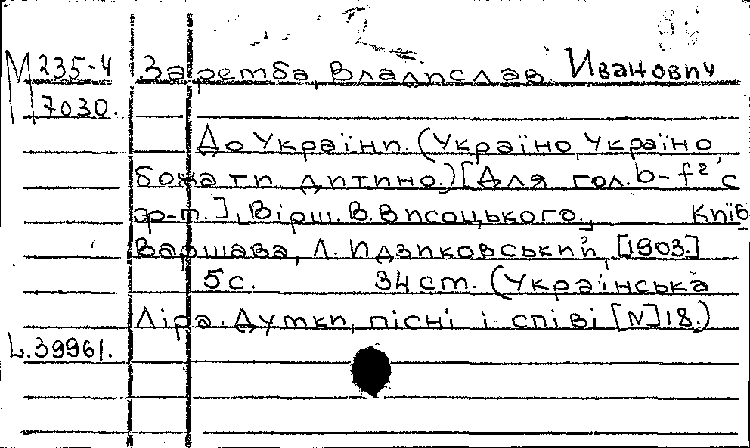 2
М 235-4 Заремба, Владислав Иванович
7030.
До України. (Україно, Україно
божа ти дитино.) [Для гол. b-f² с
ф-п.], Вірш. В. Висоцького. Київ
Варшава, Л. Идзиковський, [1903]
5 с. 34 см. (Українська
Ліра. Думки, пісні і співі [N] 18.)
L.39961.